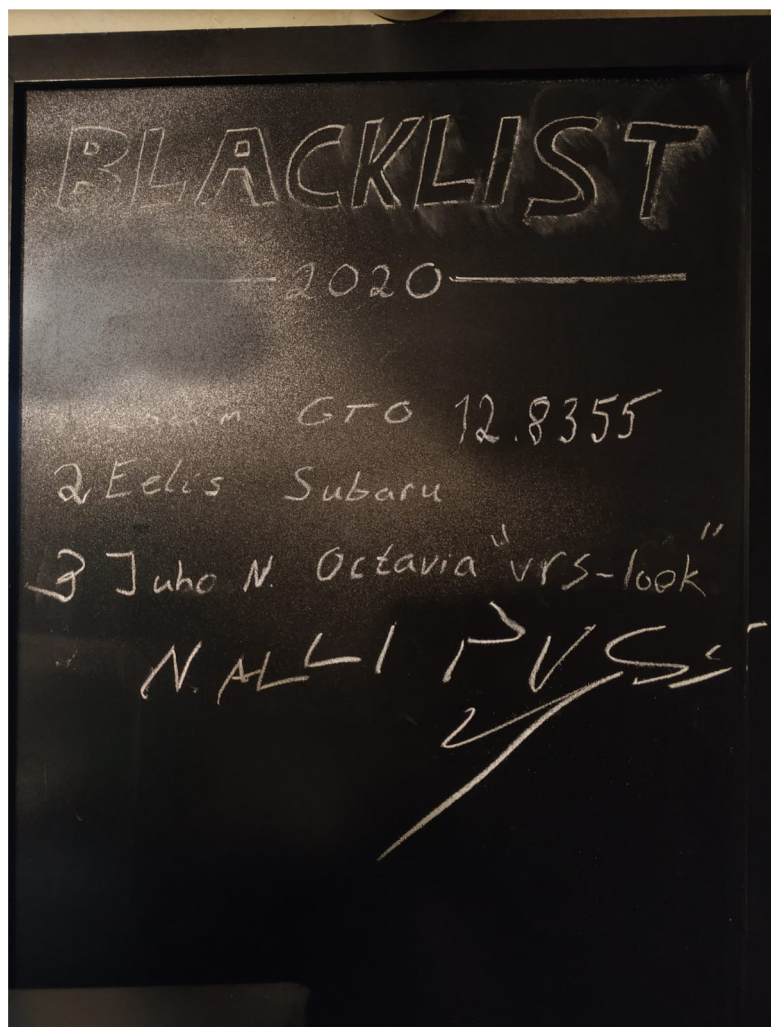 BLACKLIST
2020
GTO 12.8355
2 Eelis Subaru
3 Juho N. Octavia "vrs-look"
NALLI